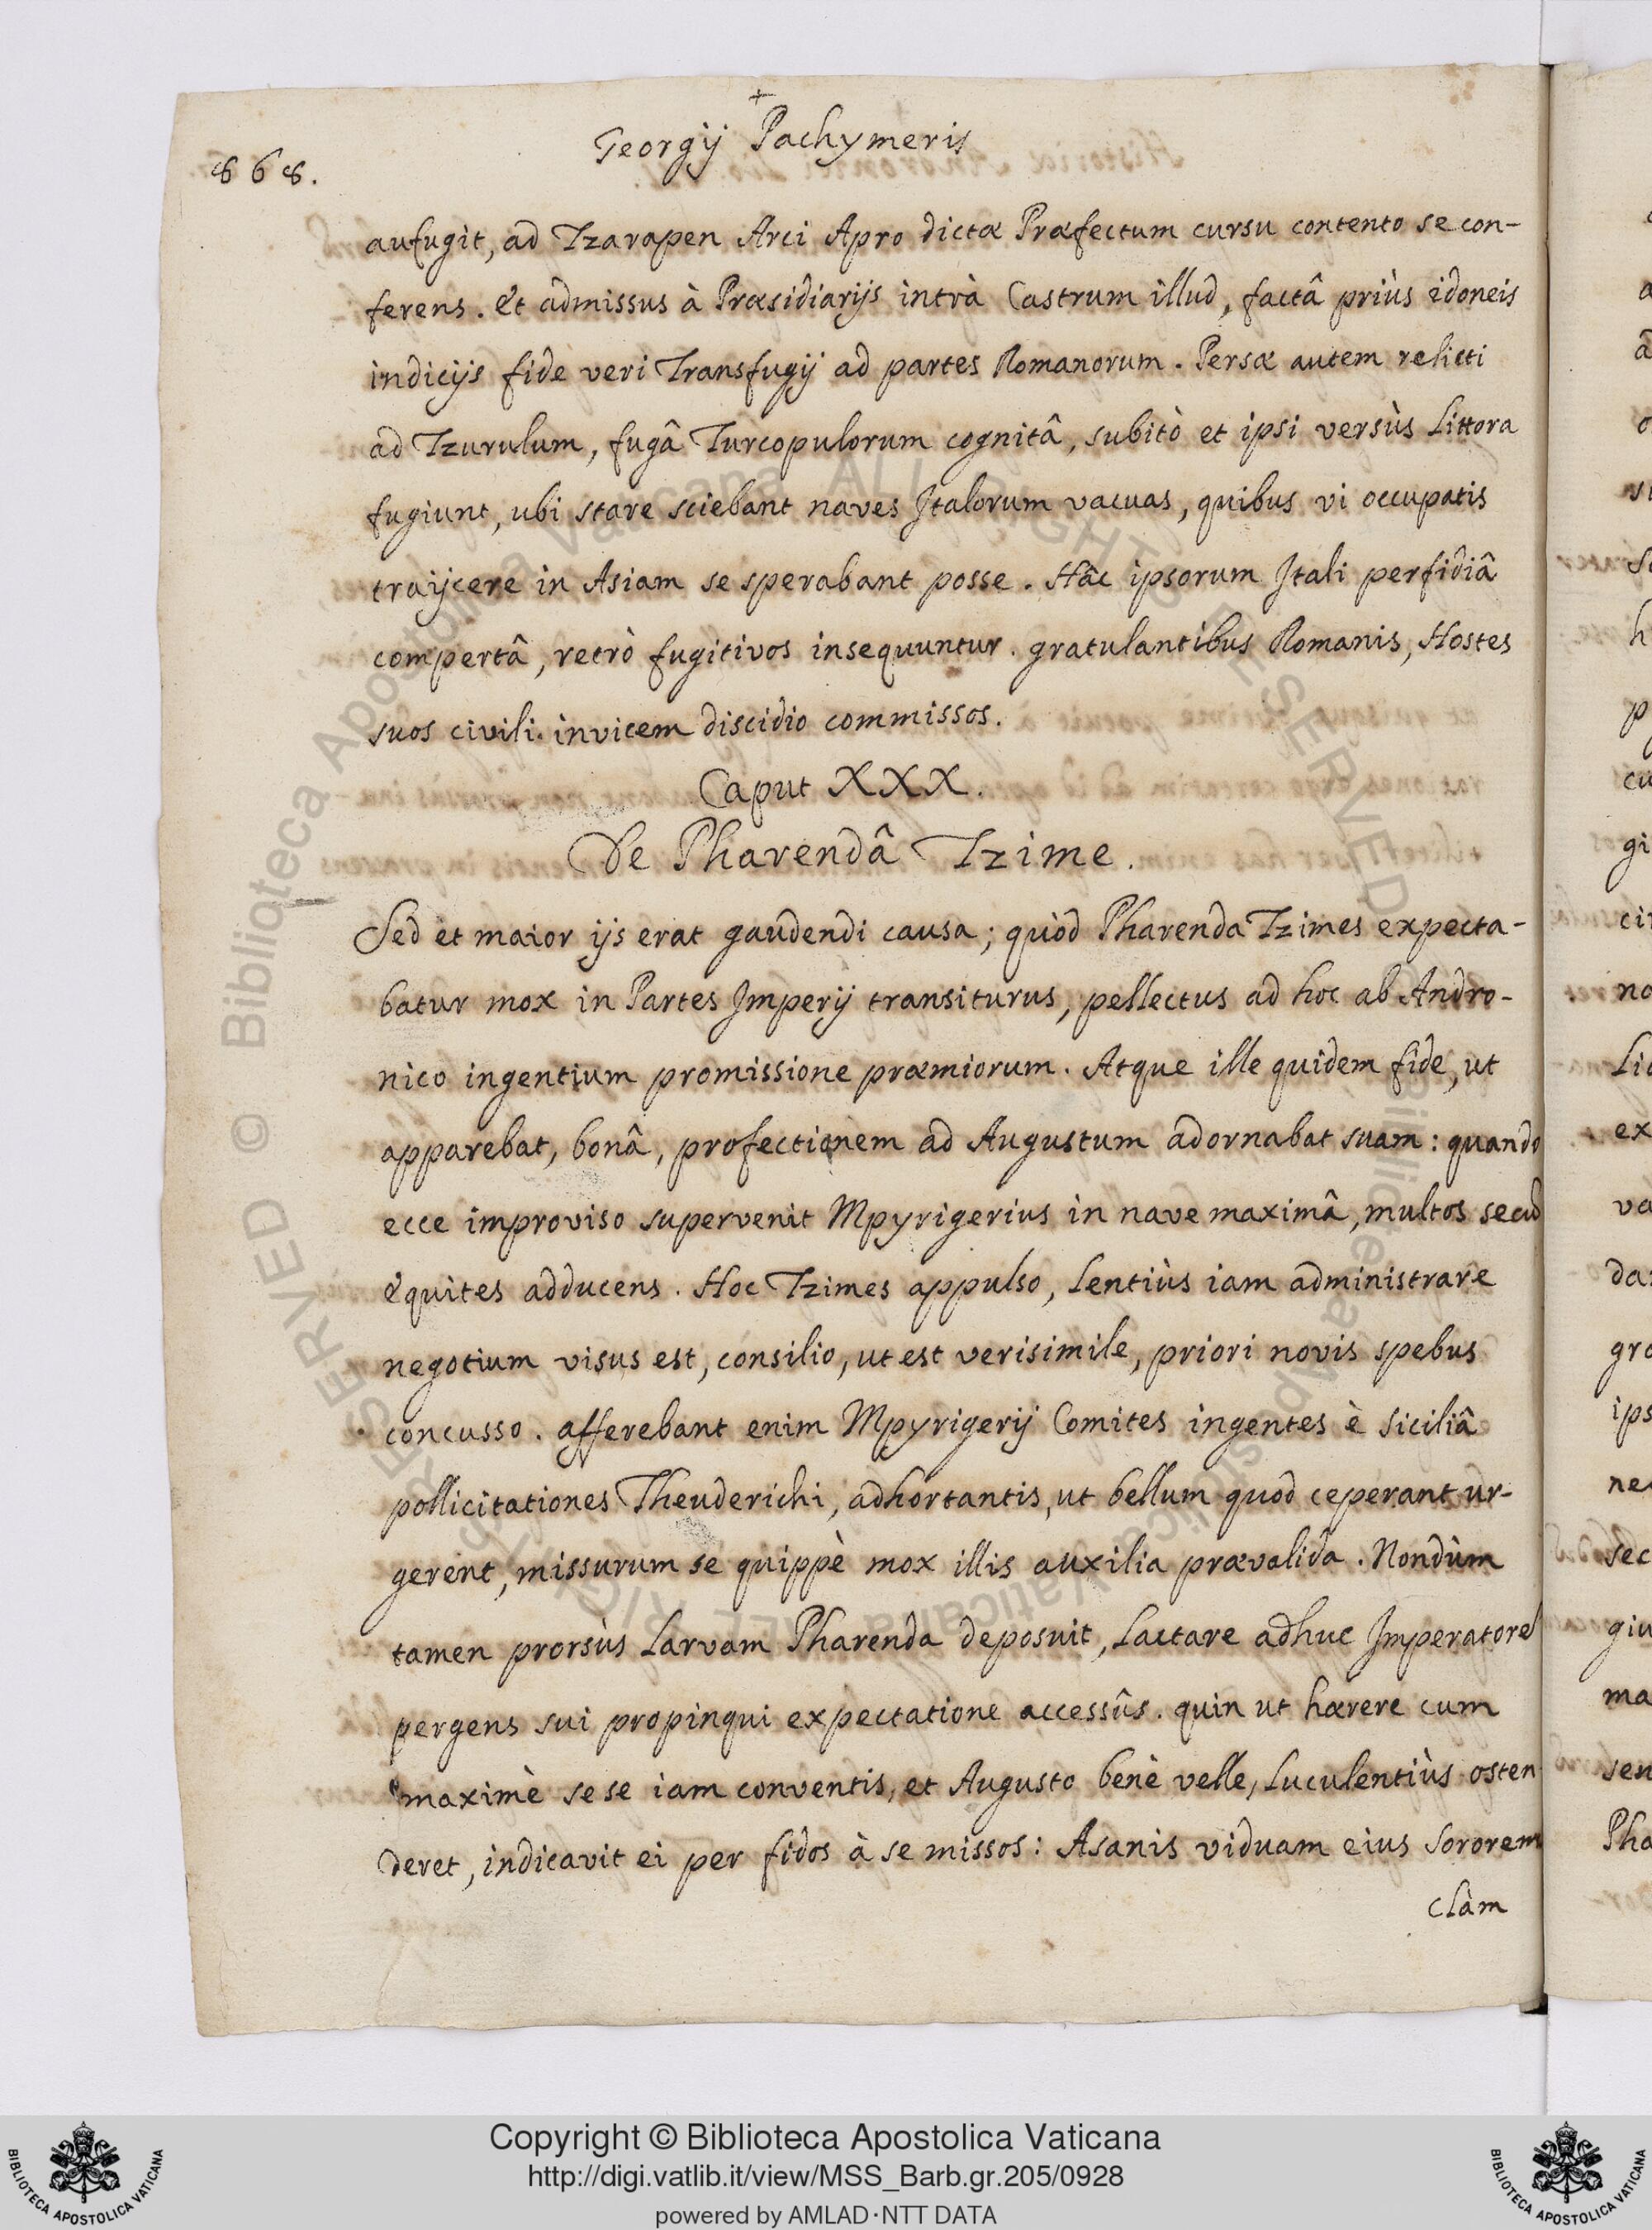 868.
Georgij Pachymeris
aufugit, ad Tzarapen Arci Apro dictæ Præfectum cursu contento se con-
ferens. Et admissus à Præsidiarijs intrà Castrum illud, factâ priùs idoneis
indicijs fide veri Transfugij ad partes Romanorum. Persæ autem relicti
ad Tzurulum, fugâ Turcopulorum cognitâ, subitò et ipsi versùs Littora
fugiunt, ubi stare sciebant naves Italorum vacuas, quibus vi occupatis
traijcere in Asiam se sperabant posse. Hâc ipsorum Itali perfidiâ
compertâ, retrò fugitivos insequuntur. gratulantibus Romanis, Hostes
suos civili invicem discidio commissos.
Caput XXX.
De Pharendâ Tzime.
Sed et maior ijs erat gaudendi causa; quòd Pharenda Tzimes expecta-
batur mox in Partes Imperij transiturus, pellectus ad hoc ab Andro-
nico ingentium promissione præmiorum. Atque ille quidem fide, ut
apparebat, bonâ, profectionem ad Augustum adornabat suam: quando
ecce improviso supervenit Mpyrigerius in nave maximâ, multos secũ
équites adducens. Hoc Tzimes appulso, Lentiùs iam administrare
negotium visus est, consilio, ut est verisimile, priori novis spebus
concusso. afferebant enim Mpyrigerij Comites ingentes è Siciliâ
pollicitationes Theuderichi, adhortantis, ut bellum quod ceperant ur-
gerent, missurum se quippè mox illis auxilia prævalida. Nondùm
tamen prorsùs Larvam Pharenda deposuit, Lactare adhuc Imperatorẽ
pergens sui propinqui expectatione accessûs. quin ut hærere cum
maximè sese iam conventis, et Augusto benè velle, Luculentiùs osten
deret, indicavit ei per fidos à se missos: Asanis viduam eius Sororem
clàm
© Biblioteca Apostolica Vaticana ALL RIGHTS RESERVED © Biblioteca Apostolica Vaticana ALL RIGHTS RESERVED
Copyright © Biblioteca Apostolica Vaticana
http://digi.vatlib.it/view/MSS_Barb.gr.205/0928
powered by AMLAD·NTT DATA
BIBLIOTECA APOSTOLICA VATICANA
BIBLIOTECA APOSTOLICA VATICANA